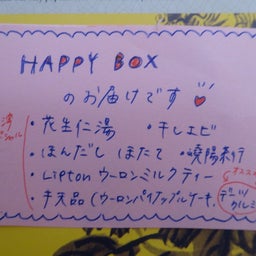 HAPPY BOX
のお届けです
・花生仁湯 ・干しエビ
・ほんだし ほたて ・曉陽素行
・Lipton ウーロンミルクティー
・手天品(ウーロンパイナップルケーキ、デーツクルミ
オススメ